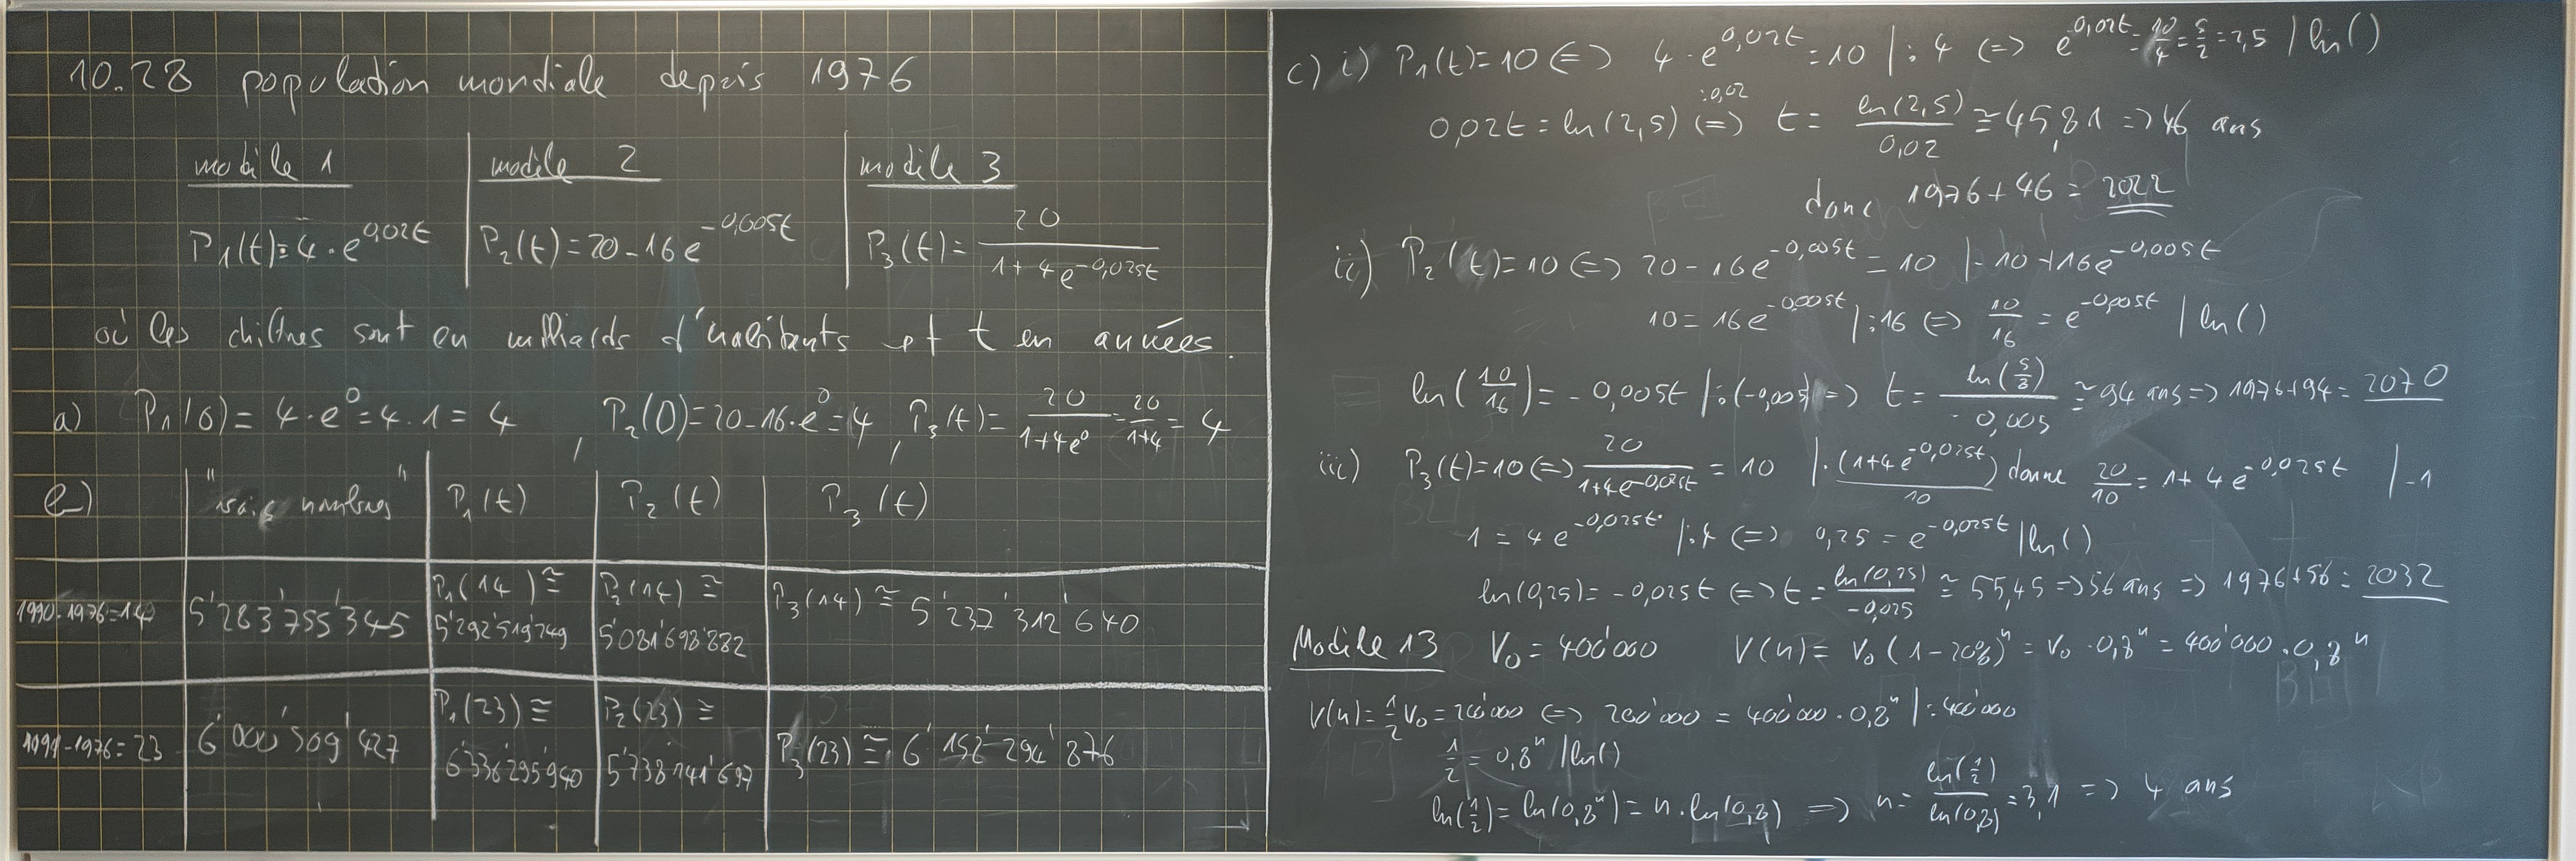 10.28 population mondiale depuis 1976
modèle 1
P₁(t)=4·e^{0,02t}
modèle 2
P₂(t)=20-16e^{-0,005t}
modèle 3
P₃(t)=20/(1+4e^{-0,025t})
où les chiffres sont en milliards d'habitants et t en années.
a) P₁(0)=4·e⁰=4·1=4, P₂(0)=20-16·e⁰=4, P₃(t)=20/(1+4e⁰)=20/(1+4)=4
b) "vrais nombres" P₁(t) P₂(t) P₃(t)
1990-1976=14 5'283'755'345 P₁(14)≅5'292'519'249 P₂(14)≅5'081'698'882 P₃(14)≅5'237'312'640
1999-1976=23 6'000'509'427 P₁(23)≅6'336'295'940 P₂(23)≅5'738'141'697 P₃(23)≅6'152'294'876
c) i) P₁(t)=10 <=> 4·e^{0,02t}=10 |:4 <=> e^{0,02t}=10/4=5/2=2,5 | ln()
0,02t=ln(2,5) <=> :0,02 t=ln(2,5)/0,02≅45,81 => 46 ans
donc 1976+46=2022
ii) P₂(t)=10 <=> 20-16e^{-0,005t}=10 |-10+16e^{-0,005t}
10=16e^{-0,005t} |:16 <=> 10/16=e^{-0,005t} | ln()
ln(10/16)=-0,005t |:(-0,005) => t=ln(5/8)/-0,005≅94 ans => 1976+94=2070
iii) P₃(t)=10 <=> 20/(1+4e^{-0,025t})=10 |·(1+4e^{-0,025t})/10 donne 20/10=1+4e^{-0,025t} |-1
1=4e^{-0,025t} |:4 <=> 0,25=e^{-0,025t} | ln()
ln(0,25)=-0,025t <=> t=ln(0,25)/-0,025≅55,45 => 56 ans => 1976+56=2032
Modèle 13 V₀=400'000 V(n)=V₀(1-20%)ⁿ=V₀·0,8ⁿ=400'000·0,8ⁿ
V(n)=½V₀=200'000 <=> 200'000=400'000·0,8ⁿ |:400'000
½=0,8ⁿ | ln()
ln(½)=ln(0,8ⁿ)=n·ln(0,8) => n=ln(½)/ln(0,8)=3,1 => 4 ans